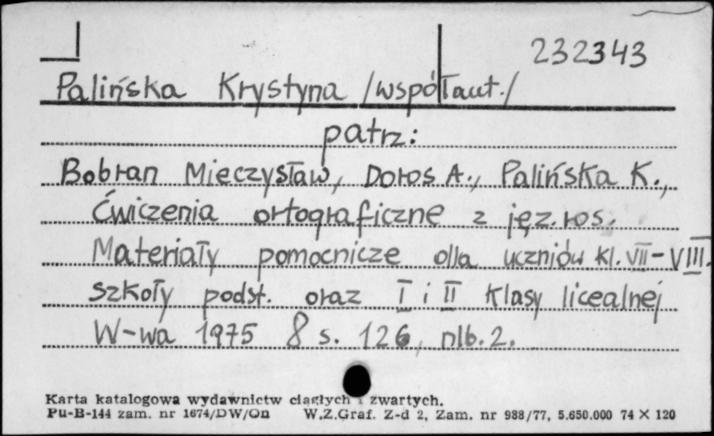 232343
Palińska Krystyna /współaut./
patrz:
Bobran Mieczysław, Doros A., Palińska K.,
Ćwiczenia ortograficzne z jęz. ros.
Materiały pomocnicze dla uczniów kl. VII-VIII
szkoły podst. oraz I i II klasy licealnej
W-wa 1975 8 s. 126, nlb. 2.
Karta katalogowa wydawnictw ciągłych i zwartych.
Pu-B-144 zam. nr 1674/DW/On W.Z.Graf. Z-d 2, Zam. nr 988/77, 5.650.000 74 × 120